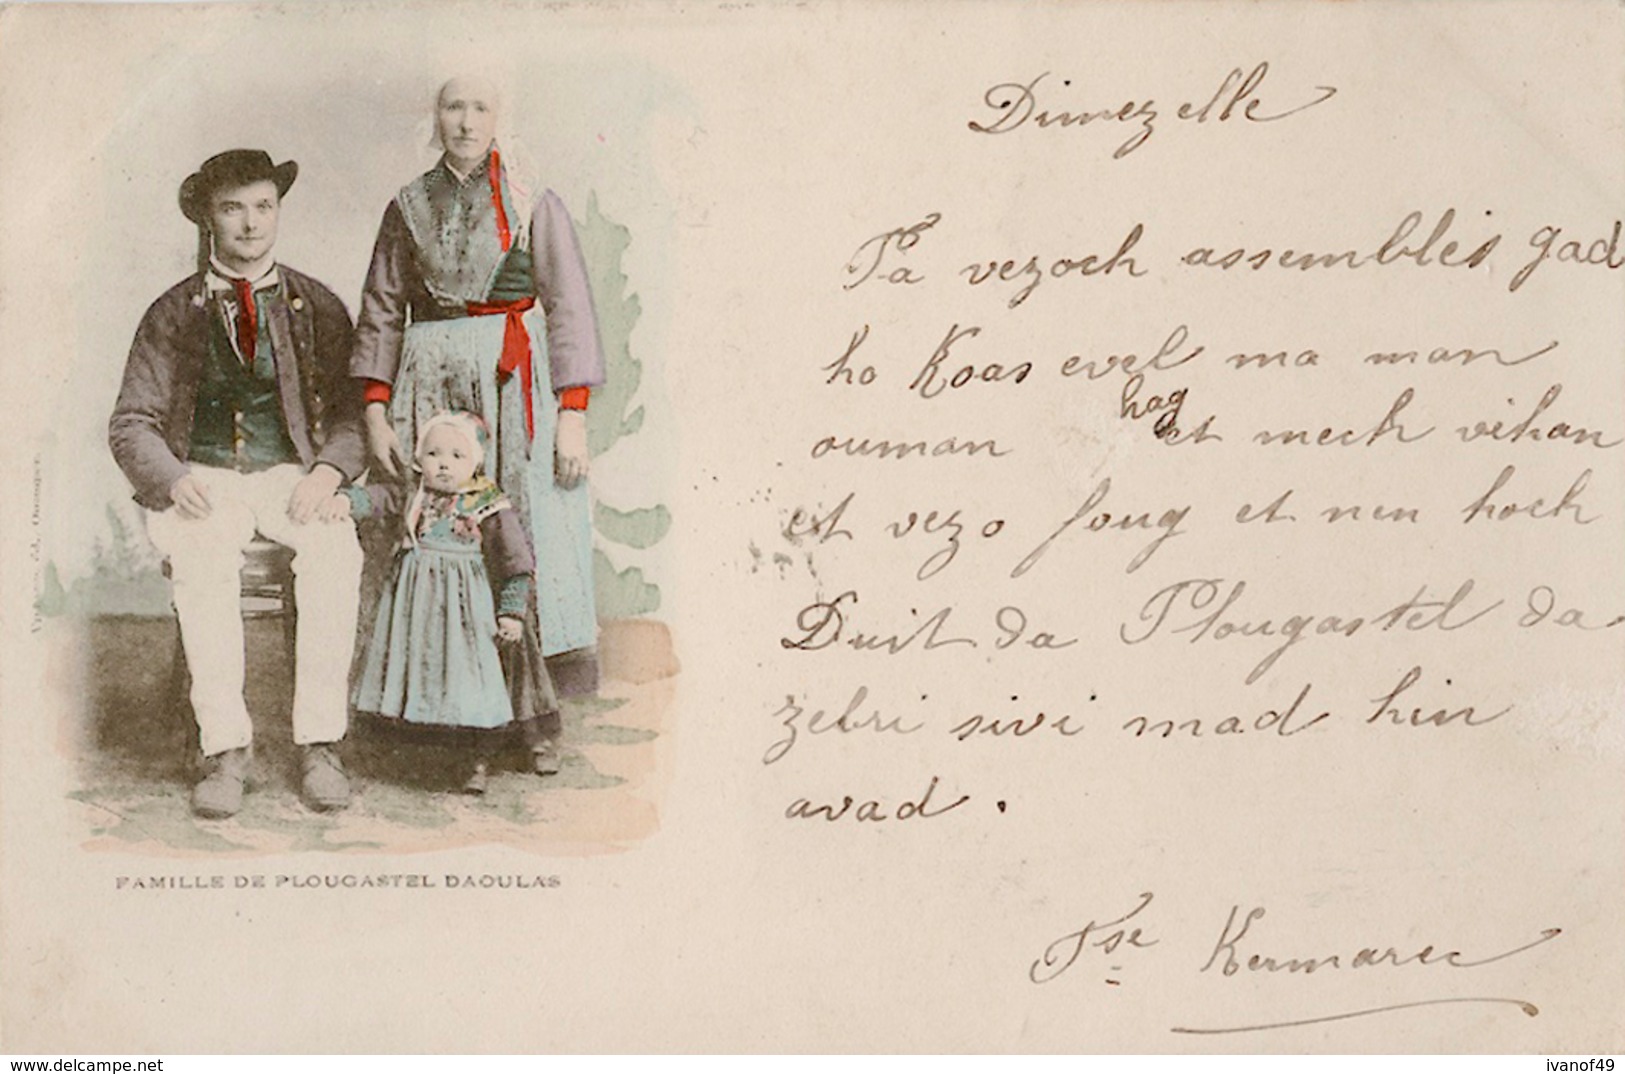 Dimezelle
Pa vezoch assembles gad
ho Koas evel ma man
ouman hag et mech vihan
et vezo foug et nen hoch
Duit da Plougastel da
zebri sivi mad hin
avad .
FAMILLE DE PLOUGASTEL DAOULAS
Tse Kermarec
delcampe.net
ivanof49